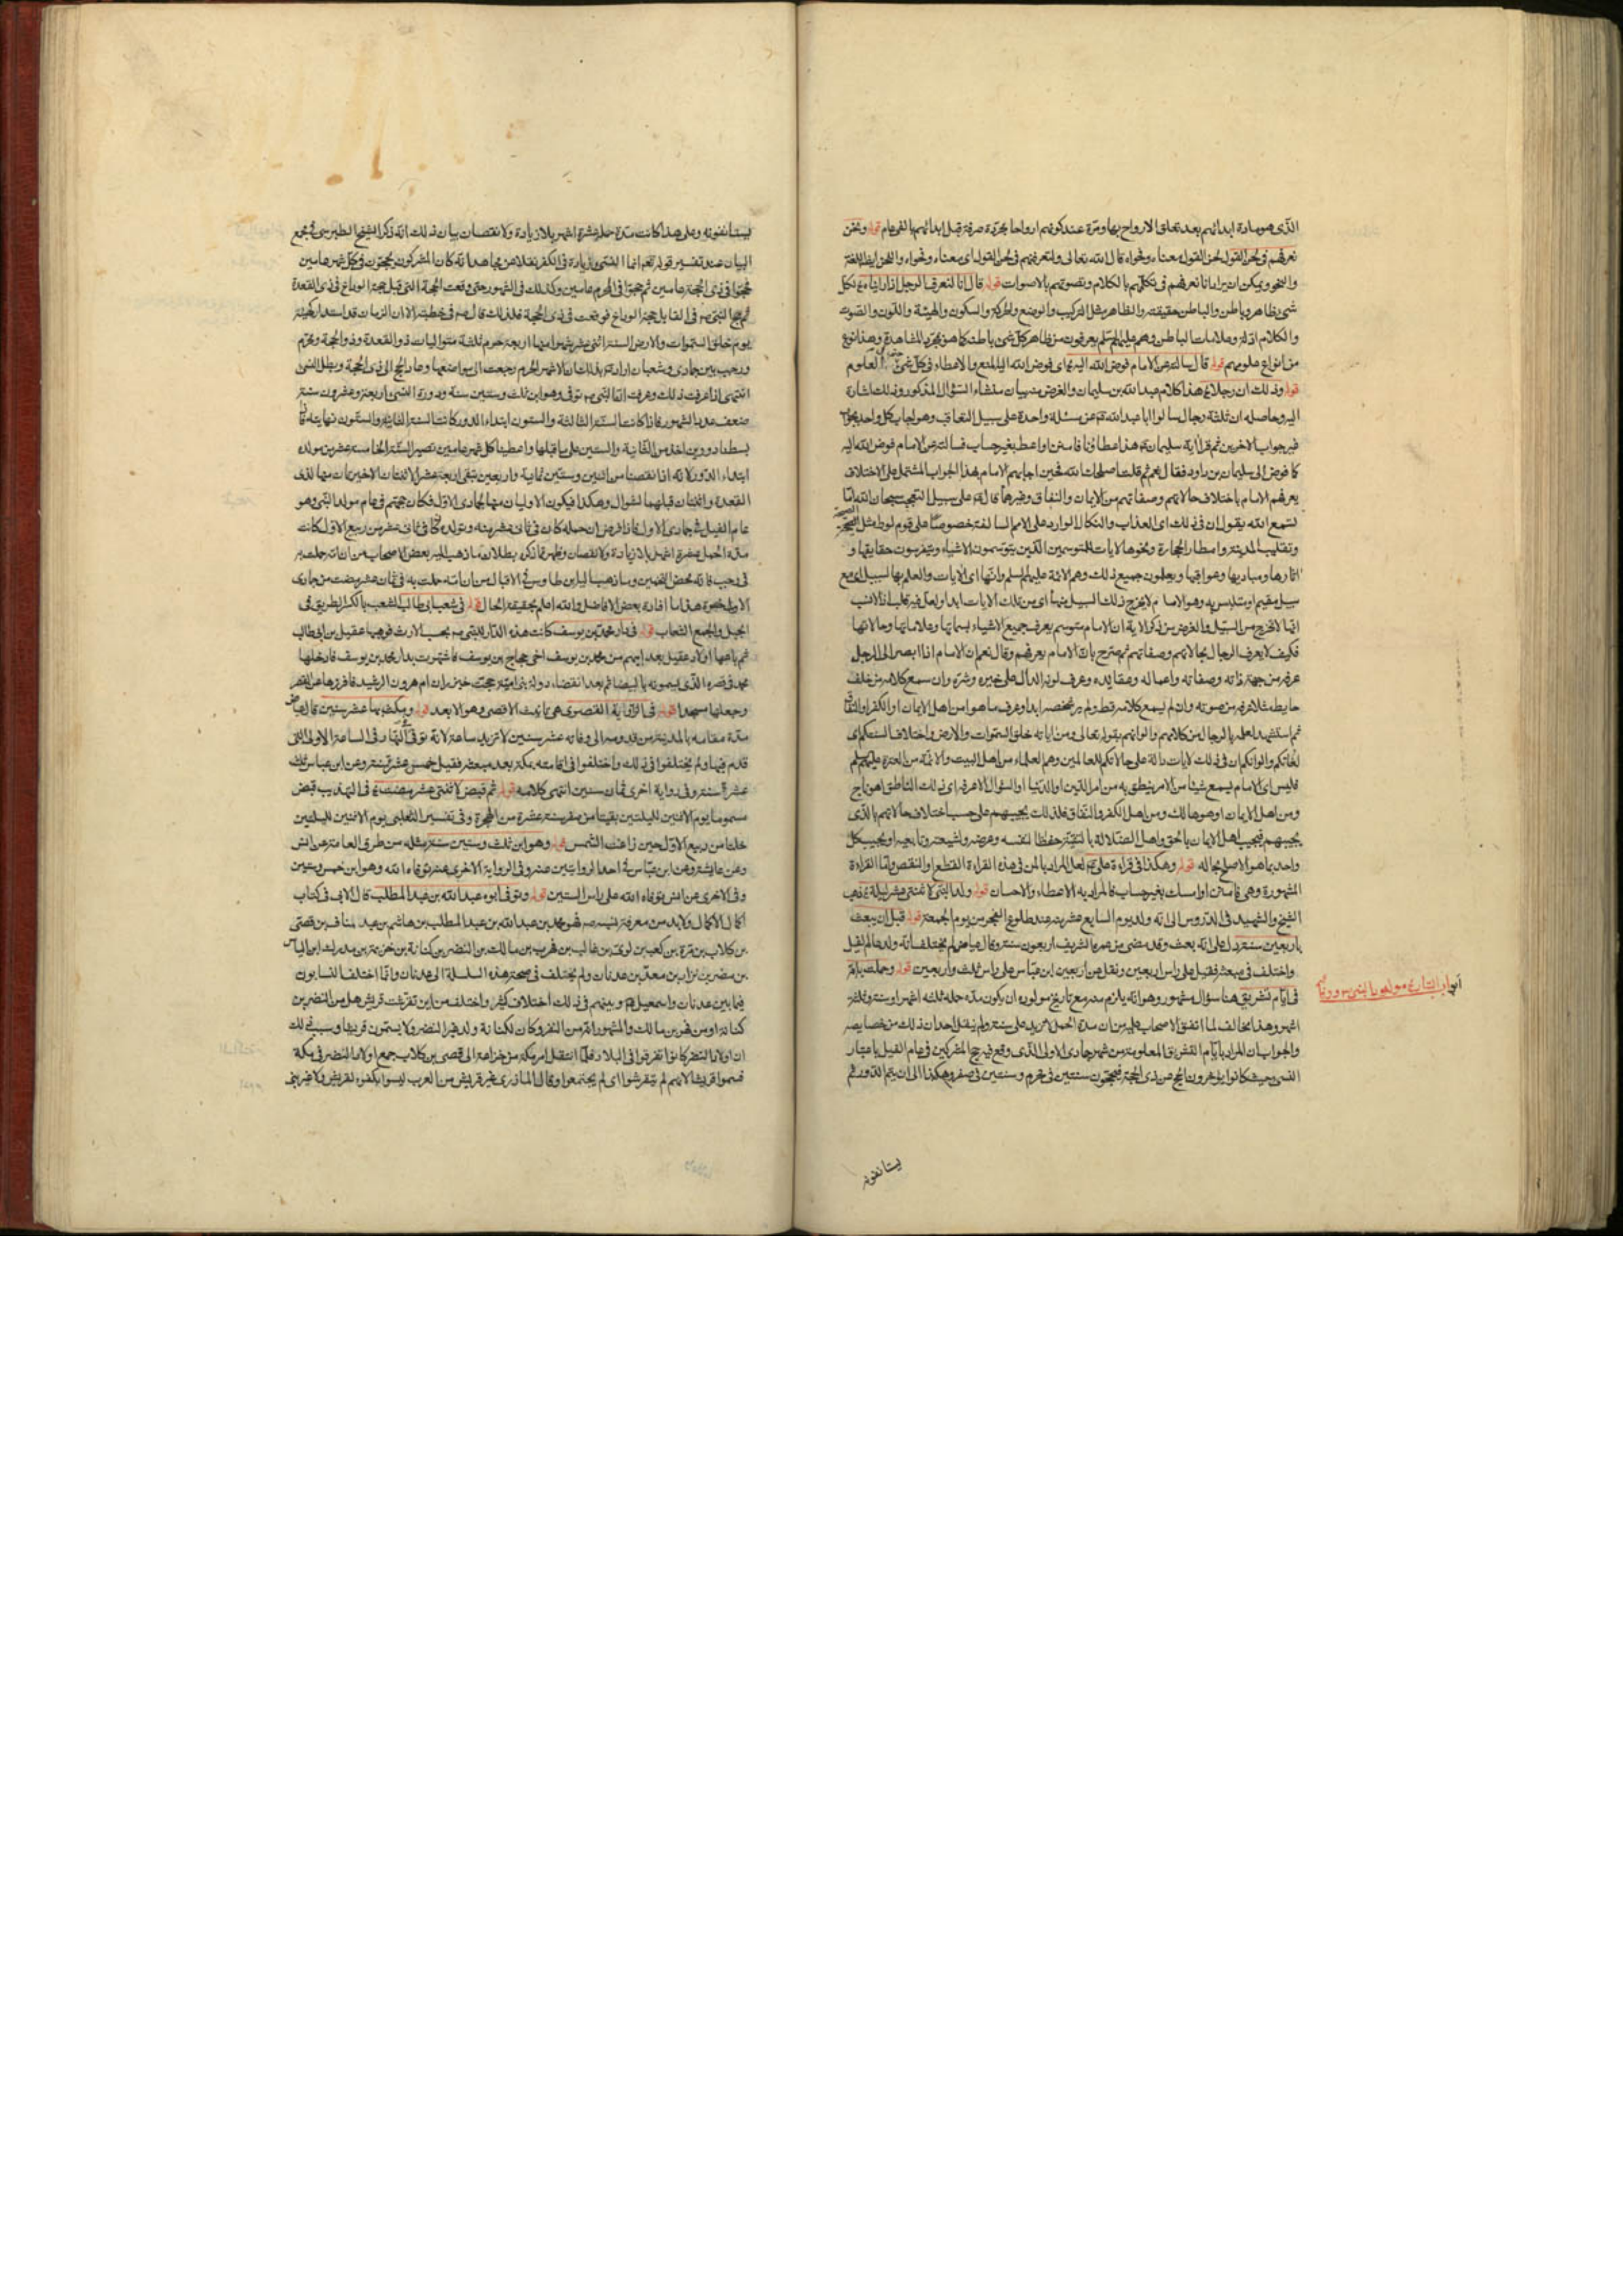 الذى هو مادة ابدانهم بعد تعلق الارواح بها ومرة عند كونهم ارواحا مجردة صرفة قبل ابدانهم بالفى عام قوله ونحن
نعرفهم فى لحن القول لحن القول معناه وفحواه قال الله تعالى ولتعرفنهم فى لحن القول اى معناه وفحواه واللحن ايضا اللغة
والنحو ويمكن ان يراد انا نعرفهم فى تكلمهم بالكلام وتصوتهم بالاصوات قوله قال انا لنعرف الرجل اذا رايناه لكل
شىء ظاهر وباطن والباطن حقيقته والظاهر مثل التركيب والوضع والحركة والسكون والهيئة واللون والصوت
والكلام ادلة وعلامات الباطن وهم عليهم السلم يعرفون من ظاهر كل شىء باطنه كما هو مجرد المشاهدة وهذا نوع
من انواع علومهم قوله قال سالته عن الامام فوض الله اليه اى فوض الله اليه المنع والاعطاء فى كل شىء العلوم
قوله وذلك ان رجلا هذا كلام عبد الله بن سليمان والغرض منه بيان منشاء السؤال المذكور وذلك اشارة
اليه وحاصله ان ثلثة رجال سالوا ابا عبد الله عن مسئلة واحدة على سبيل التعاقب وهو اجاب كل واحد بجواب
غير جواب الاخرين ثم قرأ اية سليمان هذا عطاؤنا فامنن او اعط بغير حساب فسالته عن الامام فوض الله اليه
كما فوض الى سليمان بن داود فقال نعم ثم قلت اصلحك الله فحين اجابهم الامام بهذا الجواب المشتمل على الاختلاف
يعرفهم الامام باختلاف حالاتهم وصفاتهم من الايمان والنفاق وغيرها قال على سبيل التعجب سبحان الله اما
تسمع الله يقول ان فى ذلك اى العذاب والنكال الوارد على الامم السالفة خصوصا على قوم لوط مثل الصيحة
وتقليب المدينة وامطار الحجارة ونحوها لايات للمتوسمين الذين يتوسمون الاشياء ويتفرسون حقايقها و
اثارها ومباديها وعواقبها ويعلمون جميع ذلك وهم الائمة عليهم السلم وانها اى الايات والعلم بها لبسبيل اى مع
سبيل مقيم او متلبس به وهو الامام لا يخرج ذلك السبيل منها اى من تلك الايات ابدا ولعل فيه قلب اذ الانسب
انها لا تخرج من السبيل والغرض من ذكر الاية ان الامام متوسم يعرف جميع الاشياء بسماتها وعلاماتها وحالاتها
فكيف لا يعرف الرجال بحالاتهم وصفاتهم ثم صرح بان الامام يعرفهم وقال نعم ان الامام اذا ابصر الى الرجل
عرفه من جهة ذاته وصفاته واعماله وعقايده وعرف لونه الدال على خيره وشره وان سمع كلامه من خلف
حايط مثلا عرفه من صوته وان لم يسمع كلامه قط ولم ير شخصه ابدا وعرف ما هو من اهل الايمان او الكفر او النفاق
ثم استشهد لعلمه بالرجال من كلامهم والوانهم بقوله تعالى ومن اياته خلق السموات والارض واختلاف السنتكم اى
لغاتكم والوانكم ان فى ذلك لايات دالة على حالاتكم للعالمين وهم العلماء من اهل البيت والائمة من العترة عليهم السلم
فليس اى الامام يسمع شيئا من الامر ينطق به من امر الدين او الدنيا او السؤال الا عرفه اى ذلك الناطق اهو ناج
ومن اهل الايمان او هو هالك ومن اهل الكفر والنفاق فلذلك يجيبهم على حسب اختلاف حالاتهم بالذى
يجيبهم فيجيب اهل الايمان بالحق واهل الضلالة بالتقية حفظا لنفسه وعرضه ولشيعته وتابعيه او يجيب كل
واحد بما هو الاصلح بحاله قوله وهكذا فى قراءة على لعل المراد بالمن فى هذه القراءة القطع او النقص واما القراءة
المشهورة وهى فامنن او امسك بغير حساب فالمراد به الاعطاء والاحسان قوله ولد النبى لاثنتى عشر ليلة ذهب
الشيخ والشهيد فى الدروس الى انه ولد يوم السابع عشر منه عند طلوع الفجر من يوم الجمعة قوله قبل ان يبعث
باربعين سنة دل على انه بعث وقد مضى من عمره الشريف اربعون سنة وقال عياض لم يختلف انه ولد عام الفيل
واختلف فى مبعثه فقيل على راس اربعين ونقل عن اربعين ابن عباس على راس ثلث واربعين قوله وحملت به امه
فى ايام تشريق هنا سؤال مشهور وهو انه يلزم منه مع تاريخ مولوده ان يكون مدة حمله ثلثه اشهر او سنة وثلثة
اشهر وهذا مخالف لما اتفق الاصحاب عليه من ان مدة الحمل لا يزيد على سنة ولم ينقل احد ان ذلك من خصايصه
والجواب ان المراد بايام التشريق المعلومة من شهر جمادى الاولى الذى وقع فيه حج المشركين فى عام الفيل باعتبار
النسىء حيث كانوا يؤخرون الحج عن ذى الحجة فيحجون سنتين فى محرم وسنتين فى صفر وهكذا الى ان يتم الدور ثم
يستانفونه
ابواب التاريخ مولد النبى ووفاته
يستانفونه وعلى هذا كانت مدة حمله عشرة اشهر بلا زيادة ولا نقصان بيان ذلك انه ذكر الشيخ الطبرسى فى مجمع
البيان عند تفسير قوله تعم انما النسىء زيادة فى الكفر نقلا عن مجاهد انه كان المشركون يحجون فى كل شهر عامين
فحجوا فى ذى الحجة عامين ثم حجوا فى المحرم عامين وكذلك فى الشهور حتى وقعت الحجة التى قبل حجة الوداع فى ذى القعدة
ثم حج النبى ص فى القابل حجة الوداع فوقعت فى ذى الحجة فلذلك قال ص فى خطبته الا ان الزمان قد استدار كهيئته
يوم خلق السموات والارض السنة اثنى عشر شهرا منها اربعة حرم ثلثة متواليات ذو القعدة وذو الحجة ومحرم
ورجب بين جمادى وشعبان اراد بذلك ان الاشهر الحرم رجعت الى مواضعها وعاد الحج الى ذى الحجة وبطل النسىء
انتهى اذا عرفت ذلك وعرفت ان النبى ص توفى وهو ابن ثلث وستين سنة ودورة النسىء اربعة وعشرون سنة
ضعف عدد الشهور فاذا كانت السنة الثالثة والستون ابتداء الدور كانت السنة الثانية والستون نهايته فاذا
بسطنا دورين اخذ من الثانية والستين على ما قبلها واعطينا كل شهر عامين تصير السنة الخامسة عشر من مولده
ابتداء الدور لانه اذا نقصنا من اثنين وستين ثمانية واربعين تبقى اربعة عشر الاثنتان الاخيرتان منها لذى
القعدة واثنتان قبلهما لشوال وهكذا فيكون الاوليان منها لجمادى الاول فكان حجهم فى عام مولد النبى وهو
عام الفيل فى جمادى الاول فاذا فرض ان حمله كان فى ثانى عشر منه وتولده كان فى ثانى عشر من ربيع الاول كانت
مدة الحمل عشرة اشهر بلا زيادة ولا نقصان وظهر مما ذكر بطلان ما ذهب اليه بعض الاصحاب من انه حملت به
فى رجب فانه محض التخمين وما ذهب اليه ابن طاوس فى الاقبال من ان امه حملت به فى ثمان عشر مضت من جمادى
الاولى هذا ما افاده بعض الافاضل والله اعلم بحقيقة الحال قوله فى شعب ابى طالب الشعب بالكسر الطريق فى
الجبل والجمع الشعاب قوله فى دار محمد بن يوسف كانت هذه الدار للنبى ص بحسب الارث فوهبها عقيل بن ابى طالب
ثم باعها اولاد عقيل بعد ابيهم من محمد بن يوسف اخى حجاج بن يوسف فاشتهرت بدار محمد بن يوسف فادخلها
محمد فى قصره الذى يسمونه بالبيضا ثم بعد انقضاء دولة بنى امية حجت خيزران ام هرون الرشيد فافرزها عن القصر
وجعلتها مسجدا قوله فى الزاوية القصوى هى تانيث الاقصى وهو الابعد قوله ومكث بها عشر سنين قال عياض
مدة مقامه بالمدينة من قدومه الى وفاته عشر سنين لا تزيد ساعة لانه توفى فى النهار فى الساعة الاولى التى
قدم فيها ولم يختلفوا فى ذلك واختلفوا فى اقامته بمكة بعد مبعثه فقيل خمس عشرة سنة وعن ابن عباس ثلث
عشرة سنة وفى رواية اخرى ثمان سنين انتهى كلامه قوله ثم قبض لاثنتى عشر مضت فى التهذيب قبض
مسموما يوم الاثنين لليلتين بقيتا من صفر سنة عشرة من الهجرة وفى تفسير الثعلبى يوم الاثنين لليلتين
خلتا من ربيع الاول حين زاغت الشمس قوله وهو ابن ثلث وستين سنة مثله من طرق العامة عن انس
وعن عايشة وعن ابن عباس فى احد الروايتين عنه وفى الرواية الاخرى عنه توفاه الله وهو ابن خمس وستين
وفى الاخرى عن انس توفاه الله على راس الستين قوله وتوفى ابوه عبد الله بن عبد المطلب قال الابى فى كتاب
اكمال الاكمال ولابد من معرفة نسبه ص فهو محمد بن عبد الله بن عبد المطلب بن هاشم بن عبد مناف بن قصى
بن كلاب بن مرة بن كعب بن لوى بن غالب بن فهر بن مالك بن النضر بن كنانة بن خزيمة بن مدركة ابن الياس
بن مضر بن نزار بن معد بن عدنان ولم يختلف فى صحة هذه السلسلة الى عدنان وانما اختلف النسابون
فيما بين عدنان واسمعيل وبينهم فى ذلك اختلاف كثير واختلف من اين تقرشت قريش هل من النضر بن
كنانة او من فهر بن مالك والمشهور انه من النضر وكان لكنانة ولد غير النضر ولا يسمون قريشا وسبب ذلك
ان اولاد النضر كانوا تفرقوا فى البلاد فلما انتقل امر مكة من خزاعة الى قصى بن كلاب جمع اولاد النضر فى مكة
فسموا قريشا لانهم لم يتقرشوا اى لم يجتمعوا وقال المازرى غير قريش من العرب ليسوا بكفوء لقريش ولا غير بنى